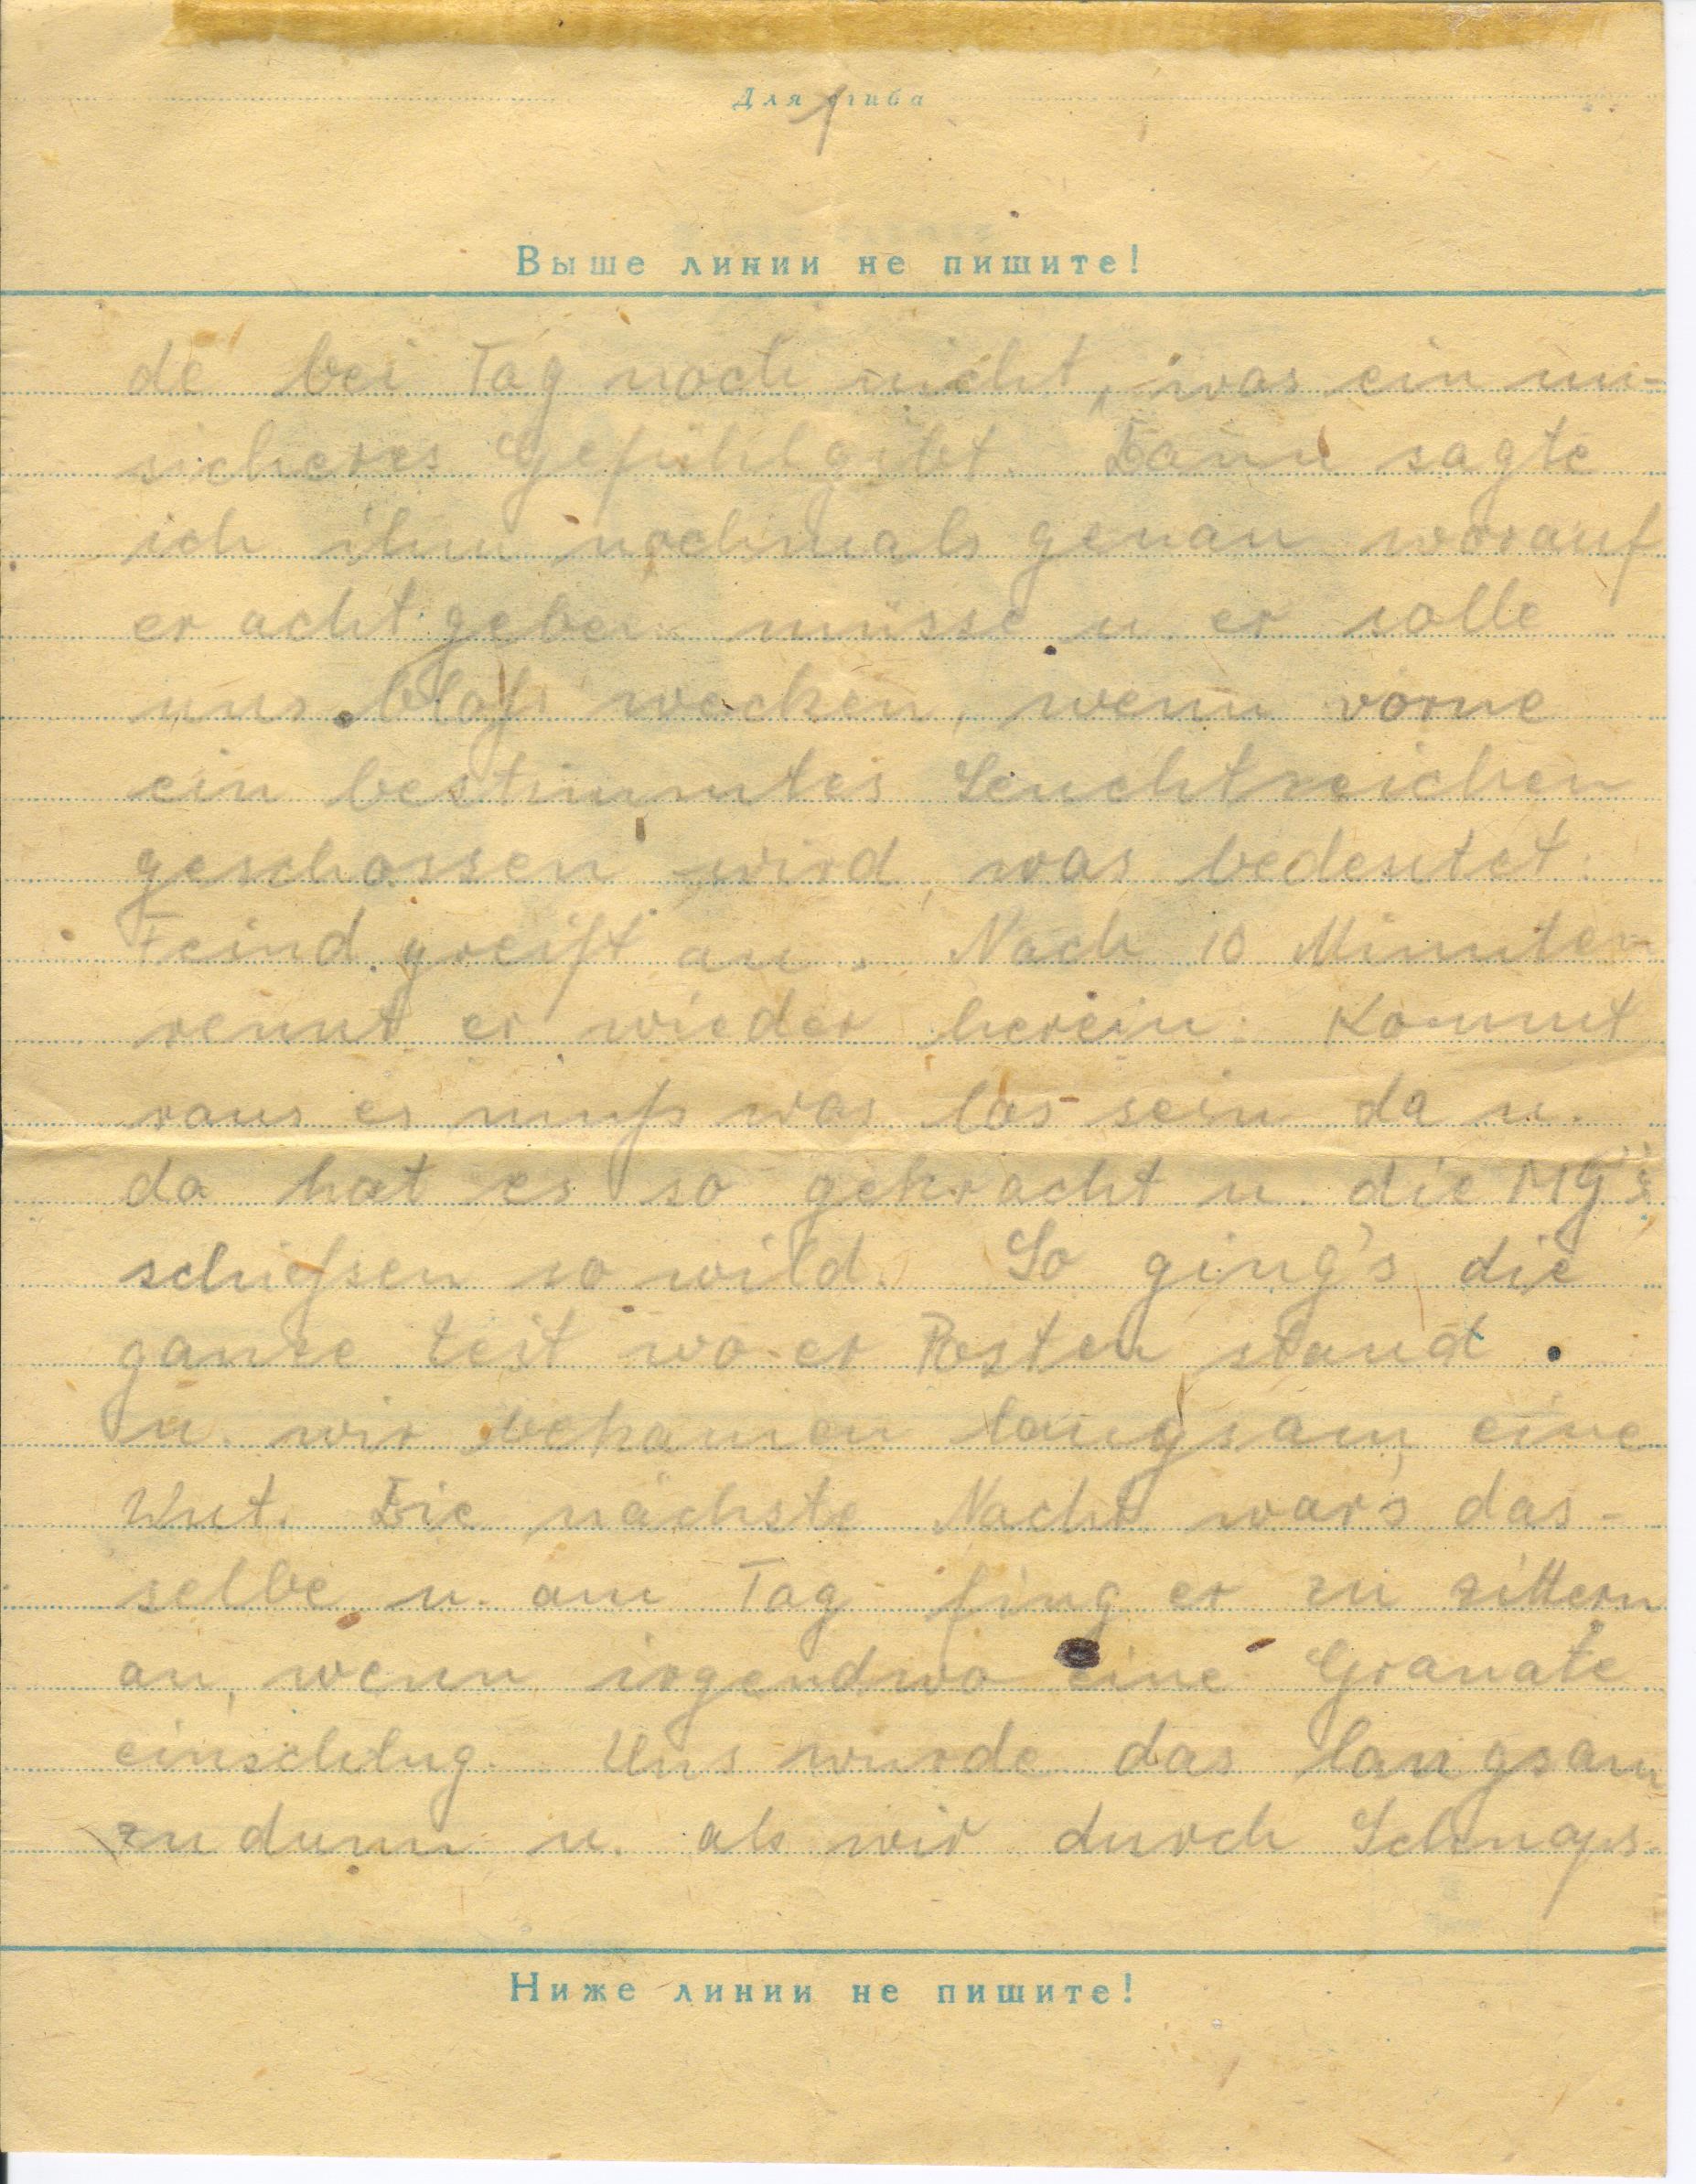 Для сгиба
Выше линии не пишите!
de bei Tag noch nicht, was ein un-
sicheres Gefühl gibt. Dann sagte
ich ihm nochmals genau worauf
er acht geben müsse u. er solle
uns bloß wecken, wenn vorne
ein bestimmtes Leuchtzeichen
geschossen wird, was bedeutet:
Feind greift an. Nach 10 Minuten
rennt er wieder herein: Kommt
raus es muß was los sein da u.
da hat es so gekracht u. die MG's
schießen so wild. So ging's die
ganze Zeit wo er Posten stand.
u. wir bekamen langsam eine
Wut. Die nächste Nacht war's das-
selbe u. am Tag fing er zu zittern
an, wenn irgendwo eine Granate
einschlug. Uns wurde das langsam
zu dumm u. als wir durch Schnaps-
Ниже линии не пишите!